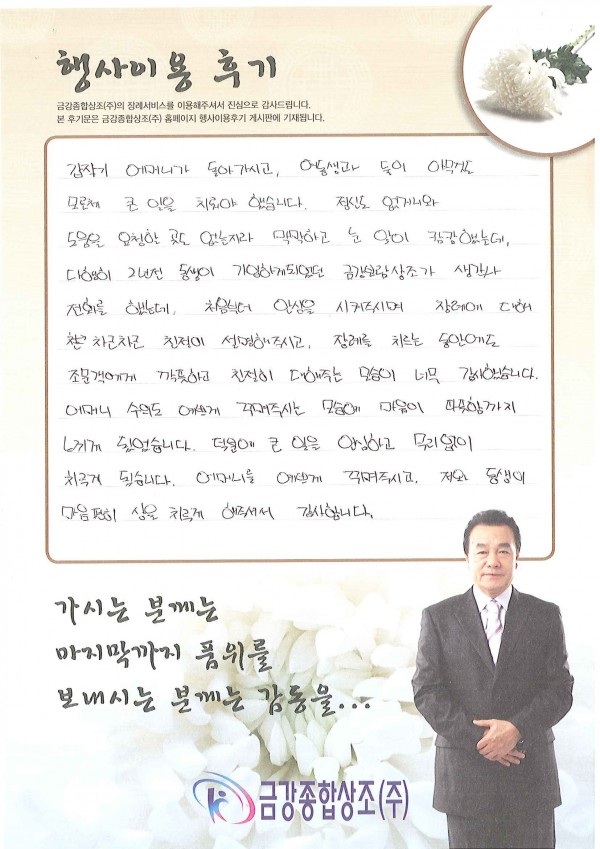 행사이용 후기
금강종합상조(주)의 장례서비스를 이용해주셔서 진심으로 감사드립니다.
본 후기문은 금강종합상조(주) 홈페이지 행사이용후기 게시판에 기재됩니다.
갑작기 어머니가 돌아가시고, 여동생과 둘이 아무것도
모른체 큰 일을 치뤄야 했습니다. 정신도 없거니와
도움을 요청한 곳도 없는지라 막막하고 눈 앞이 캄캄했는데,
다행히 2년전 동생이 가입하게되었던 금강종합상조가 생각나
전화를 했는데, 처음부터 안심을 시켜주시며 장례에 대해
차근차근 친절히 설명해주시고, 장례를 치르는 동안에도
조문객에게 깍듯하고 친절히 대해주는 모습이 너무 감사했습니다.
어머니 수의도 예쁘게 꾸며주시는 모습에 마음이 따뜻함까지
느끼게 되었었습니다. 덕분에 큰 일을 안심하고 무리없이
치르게 됐습니다. 어머니를 예쁘게 꾸며주시고, 저와 동생이
마음편히 상을 치르게 해주셔서 감사합니다.
가시는 분께는
마지막까지 품위를
보내시는 분께는 감동을...
금강종합상조(주)